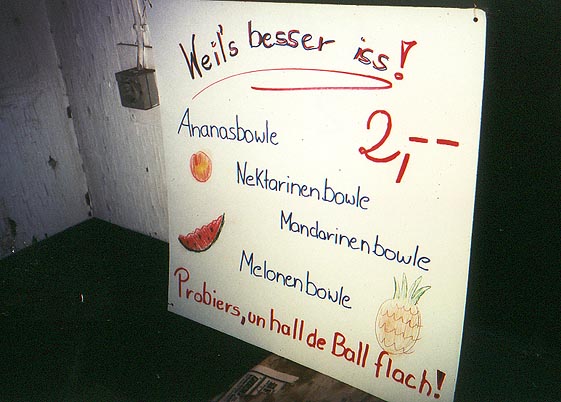 Weil's besser iss!
2,--
Ananasbowle
Nektarinenbowle
Mandarinenbowle
Melonenbowle
Probiers, un hall de Ball flach!